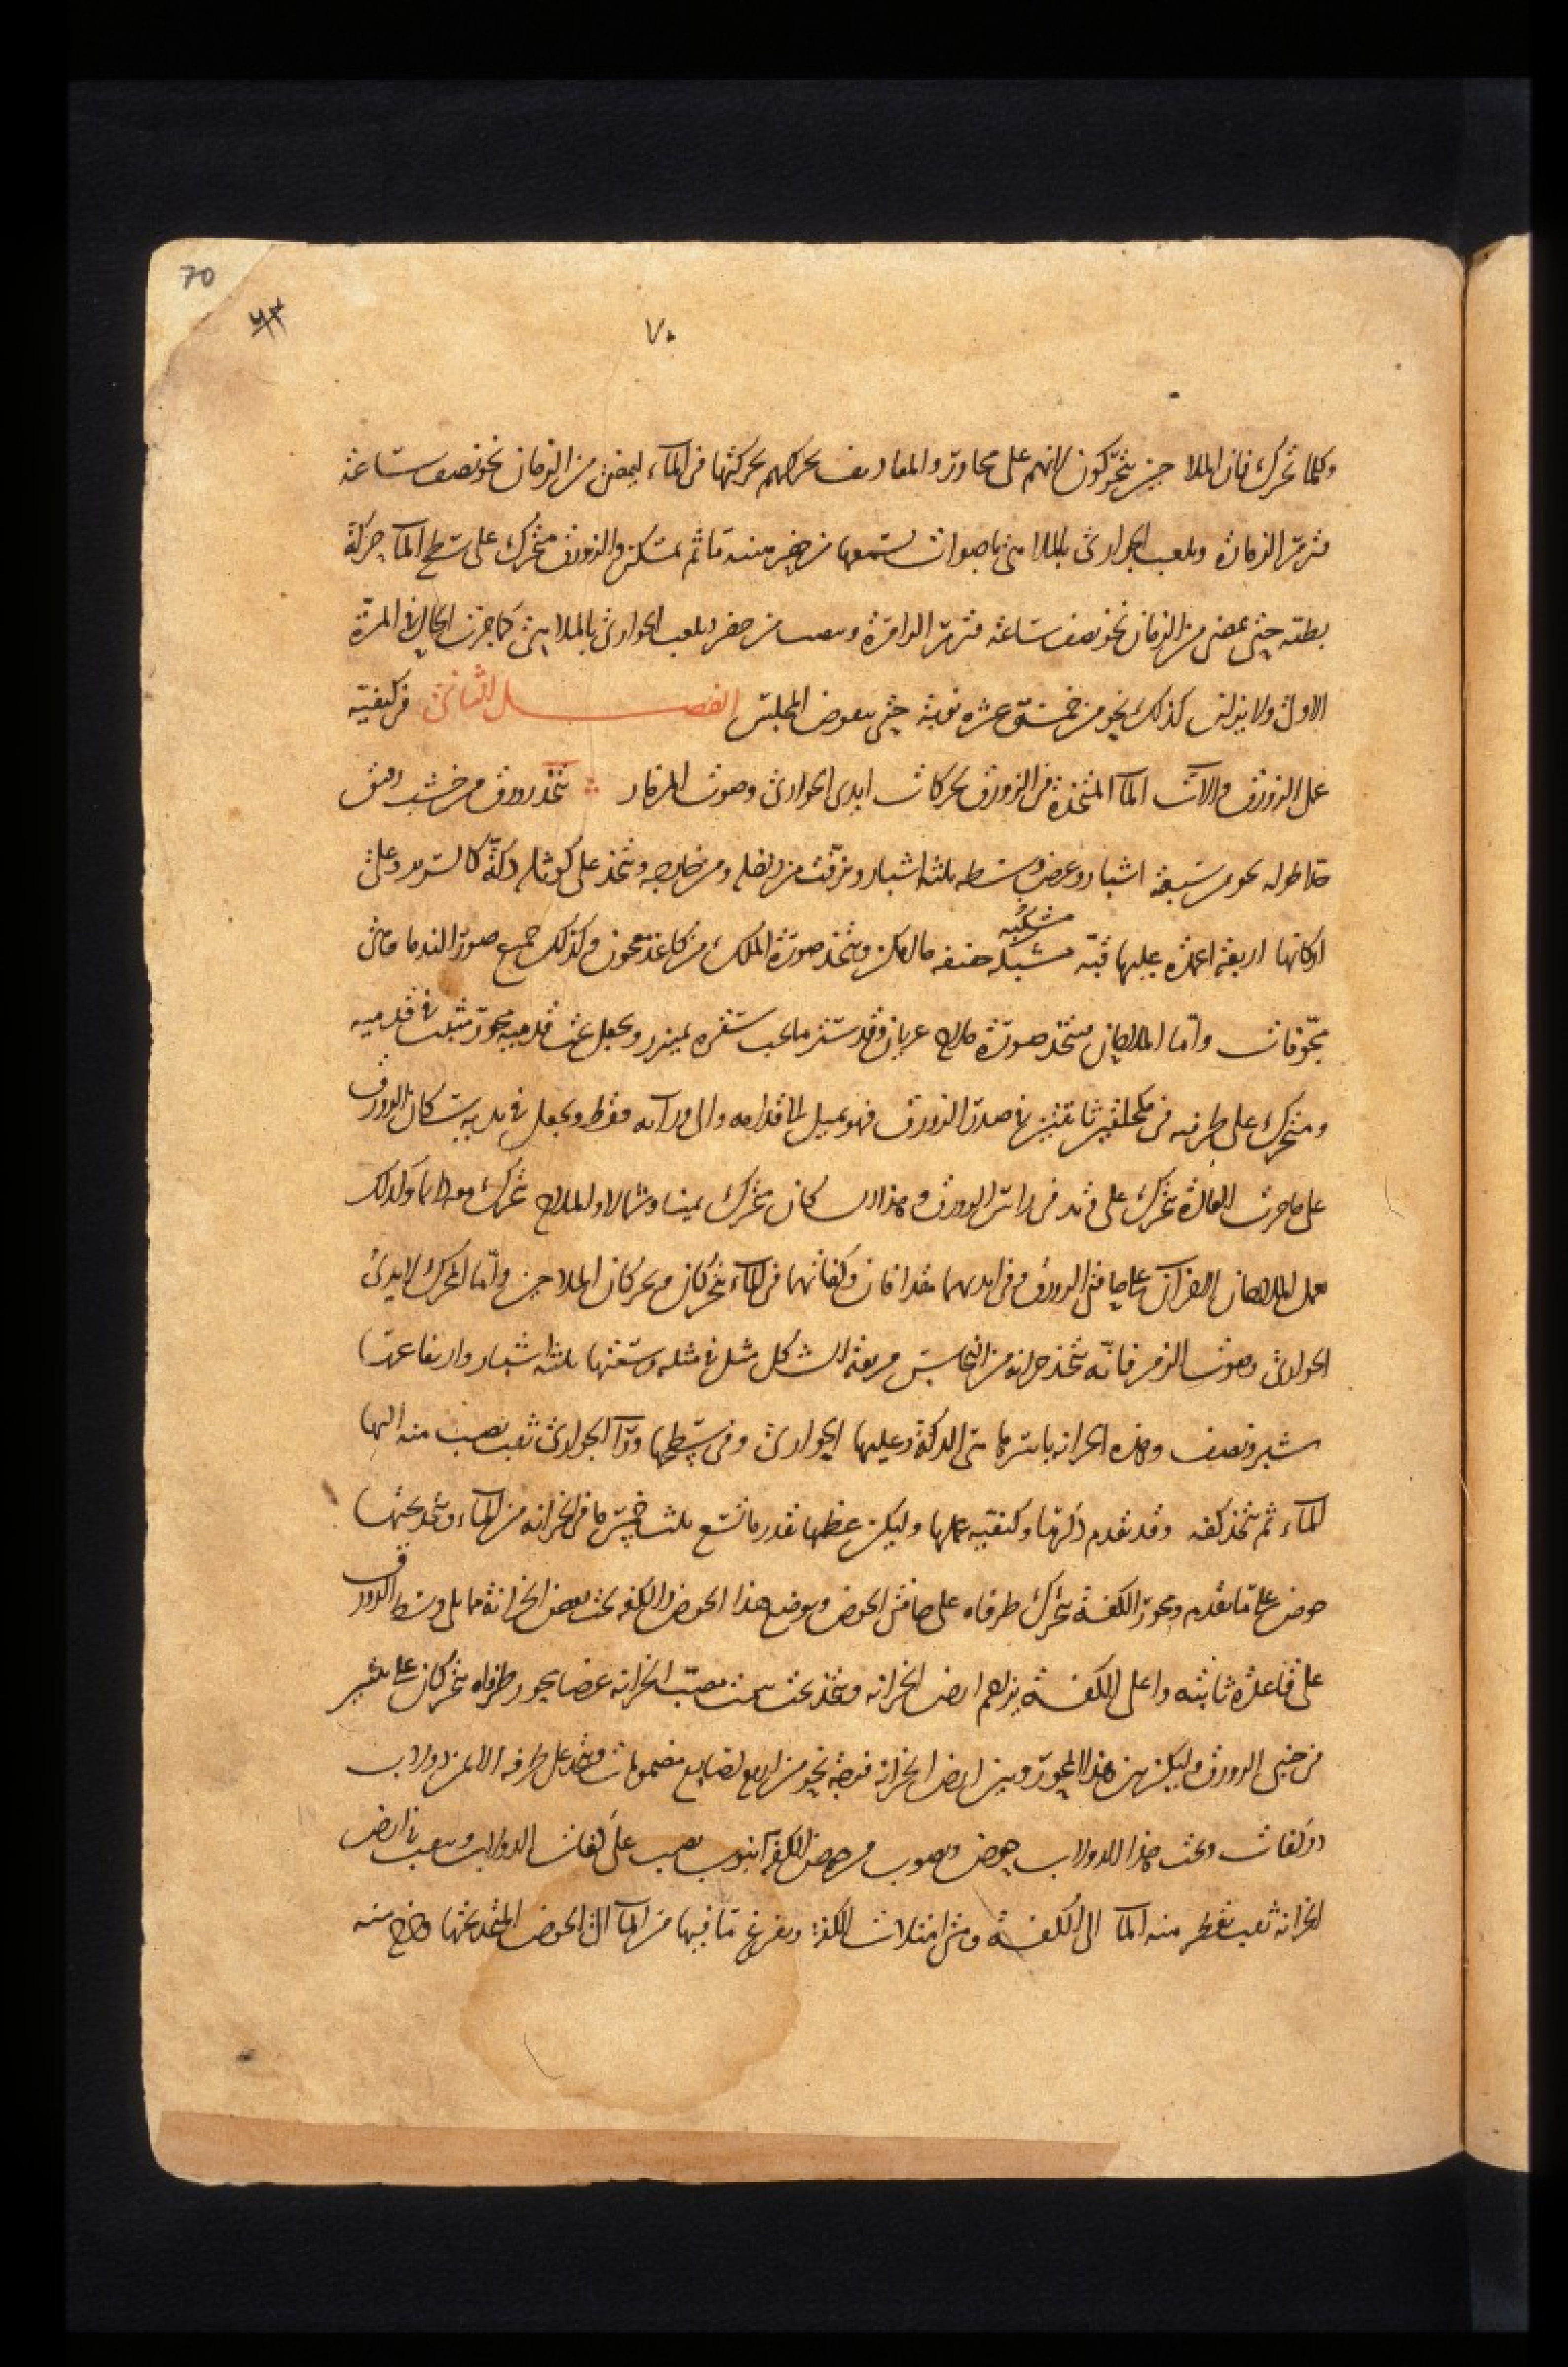 70
٧٠
وكلما تحرك فان الملاحين يتحركون لانهم على محاور والمقاديف تحركهم بحركتها في المآء ليمضي من الزمان نحو نصف ساعة
فتزمر الزمارة ويلعب الجوارى بالملاهي باصوات يسمعها من حضر ثم تسكن والزورق متحرك على سطح المآء حركة
بطية حتى يمضى من الزمان نحو نصف ساعة فتزمر الزامرة من حضر ويلعب الجوارى بالملاهى كما جرت الحال في المرة
الاولى ولا يزلن كذلك نحو من خمس عشرة نوبة حتى يتقوض المجلس الفصل الثانى في كيفية
عمل الزورق والات المآء المتخذة في الزورق بحركات ايدى الجوارى وصوت المزمار يتخذ زورق من خشب رقيق
طوله نحو من سبعة اشبار وعرض وسطه ثلثة اشبار ويزفت من داخله ومن خارجه ويتخذ على كوثله دكة كالسرير وعلى
اركانها اربعة اعمدة عليها قبة مشبكة خفيفة ويتخذ صورة الملك من كاغذ معجون وكذلك جميع صور الندما
مجوفات واما الملاحان فيتخذ صورة ملاح عريان وقد ستر ما يجب ستره بميزر ويجعل تحت قدميه محور مثبت في قدميه
ومتحرك على طرفيه في محلقتين ثابتتين في صدر الزورق فهو يميل الى قدامه والى ورآئه فقط ويجعل في يديه سكان الزورق
على ما جرت العادة يتحرك على وتد في راس الزورق وهذا السكان يتحرك يمينا وشمالا والملاح يتحرك معه دائما وكذلك
يعمل الملاحان الاخران على حافتى الزورق وفي ايديهما مقدافان وكفاتهما في المآء يتحركان ويحركان الملاحين واما المحرك لايدى
الجوارى وصوت الزمر فانه يتخذ خزانه من النحاس مربعة الشكل مثل في مثله وسعتها ثلثة اشبار وارتفاعها
شبر ونصف وهذه الخزانه باسرها هى الدكة وعليها الجوارى وفي سطحها ورآء الجوارى ثقب يصب منه اليها
المآء ثم يتخذ كفه وقد تقدم ذكرها وكيفية عملها وليكن عظمها بقدر ما تسع ثلث خمس ما في الخزانه من المآء ويتخذ تحتها
حوض على ما تقدم ومحور الكفة يتحرك طرفاه على حافتى الحوض ويوضع هذا الحوض والكفه تحت بعض الخزانة مما يلى وسط الزورق
على قاعدة ثابته واعلى الكفة يزاحم ارض الخزانه ويتخذ تحت سمت مصب الخزانه عرضا محور طرفاه يتحركان على
في جنبى الزورق وليكن بين هذا المحور وبين ارض الخزانه فرجة نحو من اربع اصابع مضمومات ويتخذ على طرفه الايمن دولاب
ذو كفات وتحت هذا الدولاب حوض ويصوب من حوض الكفة انبوب يصب على كفات الدولاب ويثقب في ارض
الخزانه ثقب يقطر منه المآ الى الكفة ومتى امتلات الكفة ويفرغ ما فيها من المآ الى الحوض المتخذ تحتها وخرج منه